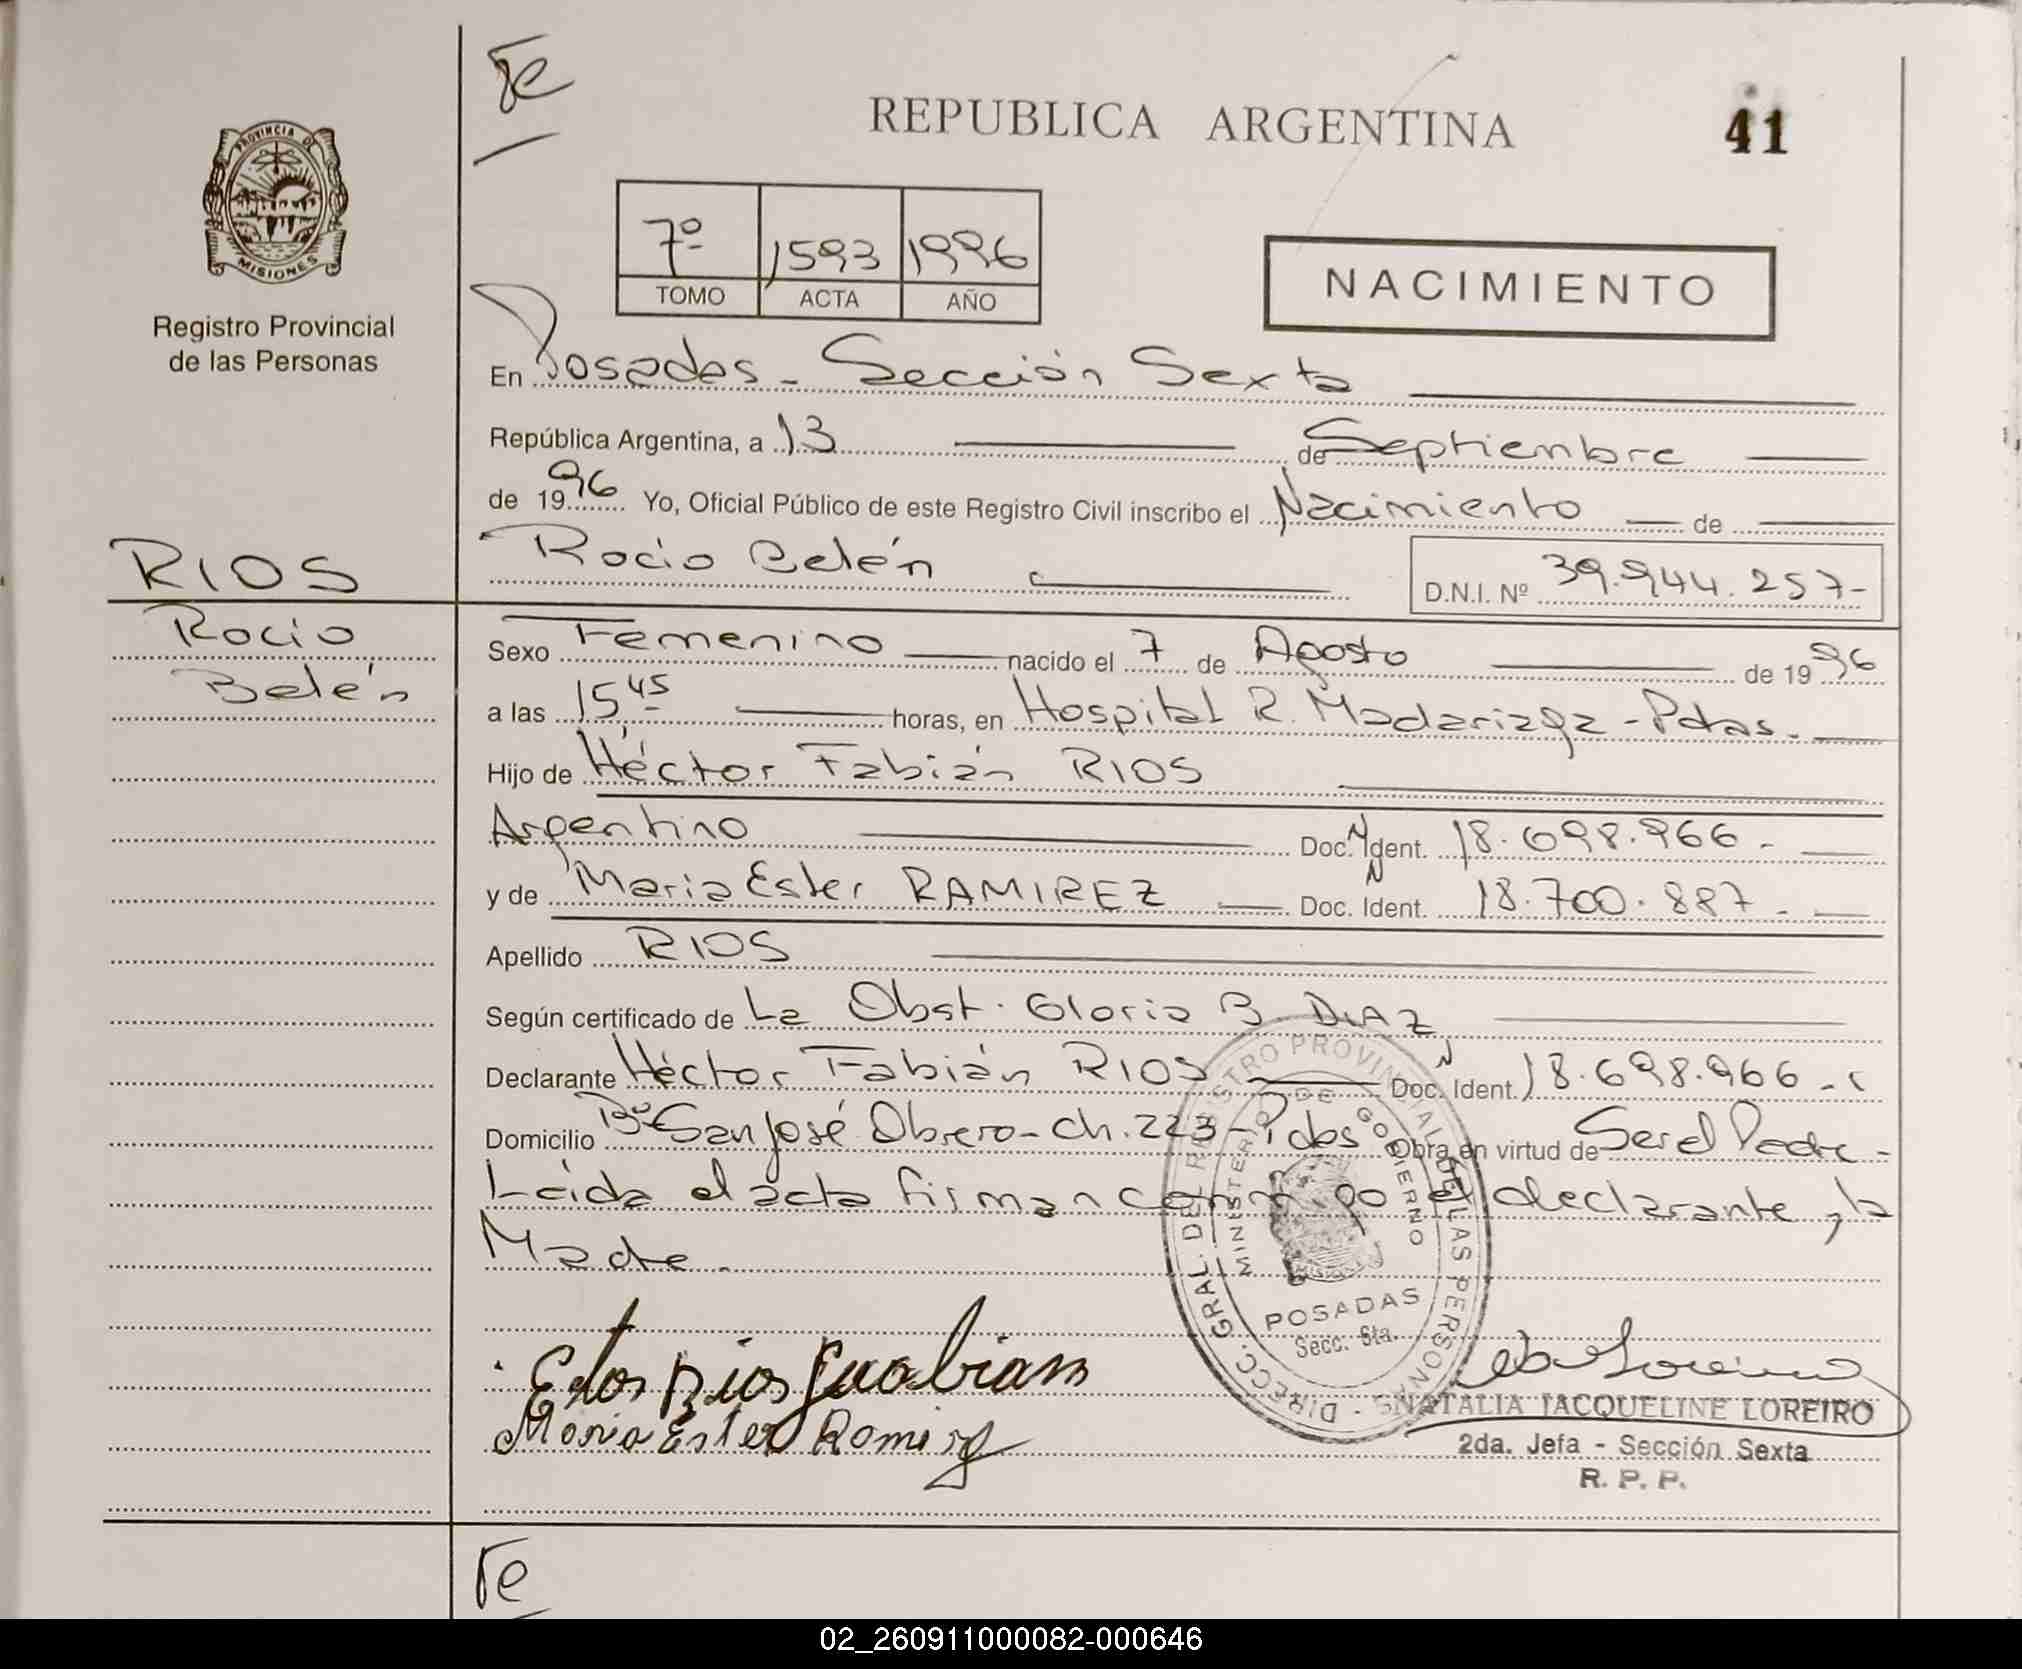 Fe
REPUBLICA ARGENTINA
41
PROVINCIA DE
MISIONES
Registro Provincial
de las Personas
7º 1593 1996
TOMO ACTA AÑO
NACIMIENTO
En Posadas - Sección Sexta
República Argentina, a 13 de Septiembre
de 1996 Yo, Oficial Público de este Registro Civil inscribo el Nacimiento de
Rocio Belén D.N.I. Nº 39.944.257-
RIOS
Rocio
Belén
Sexo Femenino nacido el 7 de Agosto de 1996
a las 15,45 horas, en Hospital R. Madariaga - Pdas.
Hijo de Héctor Fabián RIOS
Argentino Doc. N Ident. 18.698.966.-
y de Maria Ester RAMIREZ Doc. N Ident. 18.700.887.-
Apellido RIOS
Según certificado de La Obst. Gloria B DIAZ
Declarante Héctor Fabián RIOS Doc. N Ident. 18.698.966.-
Domicilio Bº San José Obrero - Ch. 223 - Pdas Obra en virtud de Ser el Padre -
Leida el acta firman conmigo el declarante y la
Madre.
DIRECC. GRAL. DEL REGISTRO PROVINCIAL DE LAS PERSONAS
MINISTERIO DE GOBIERNO
MISIONES
POSADAS
Secc. 6ta.
Etor Rios Fuabian
Maria Ester Romirez
NATALIA JACQUELINE LOREIRO
2da. Jefa - Sección Sexta
R. P. P.
Fe
02_260911000082-000646